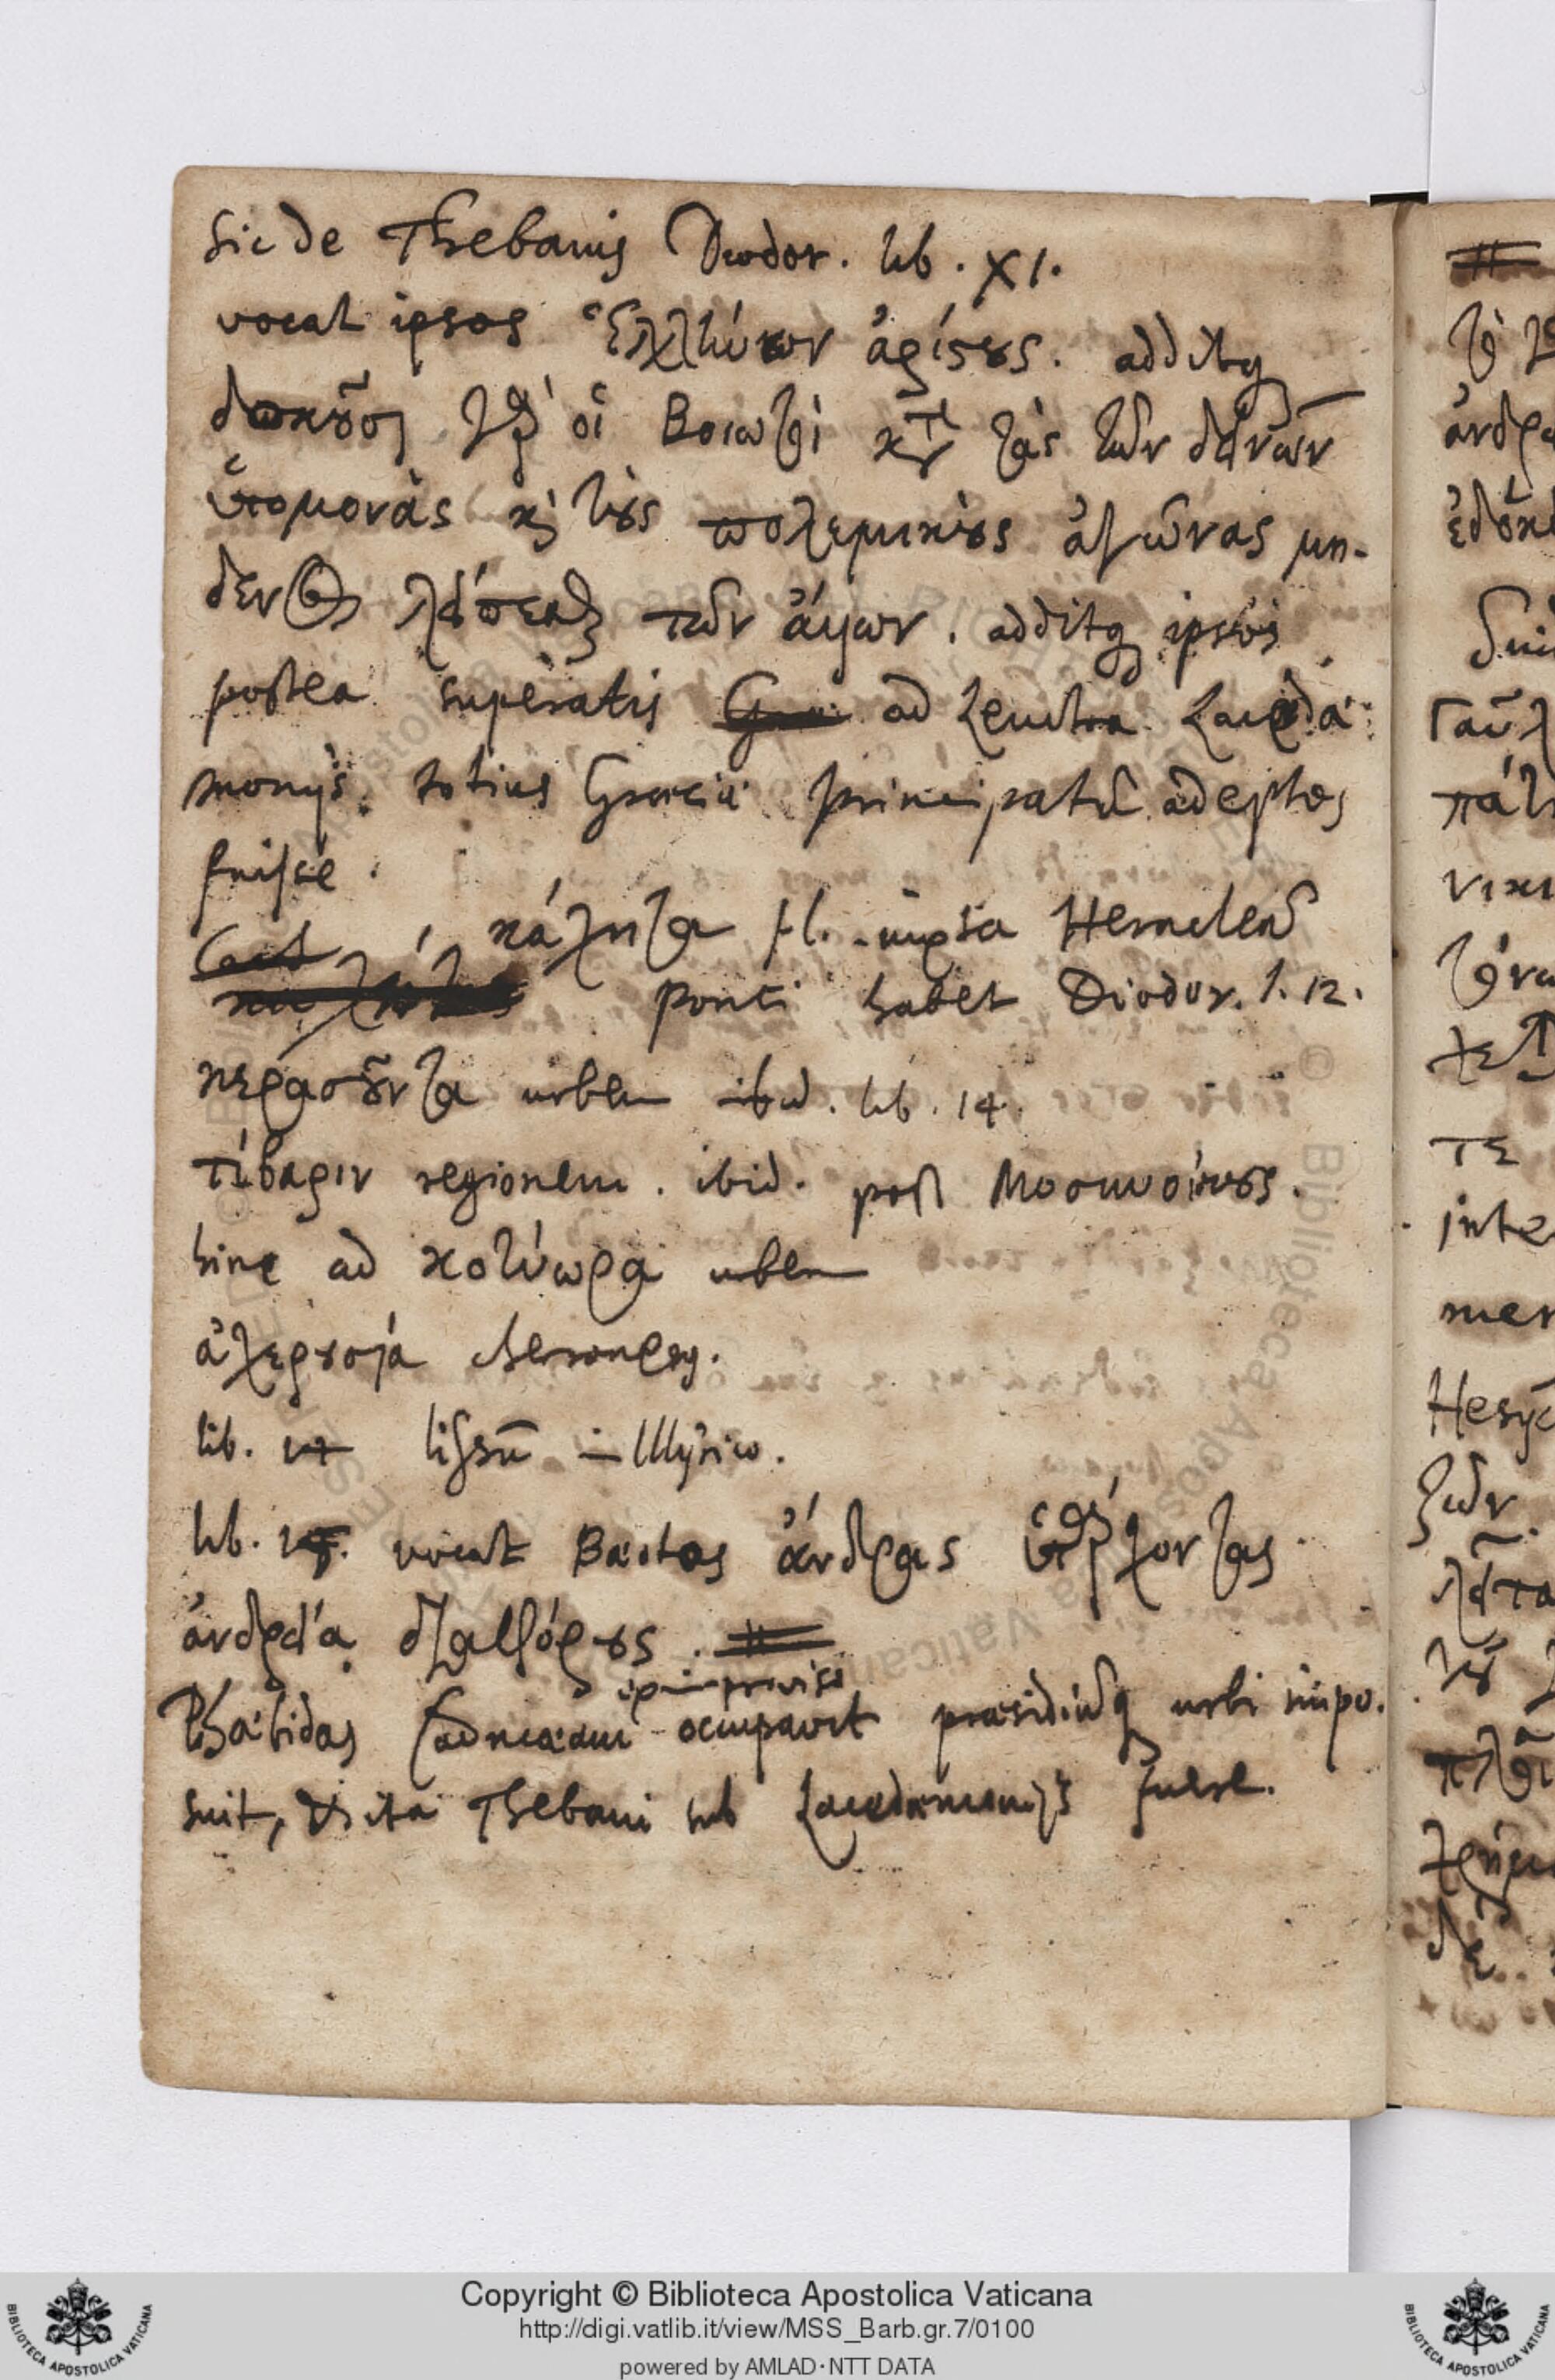 Sic de Thebanis Diodor. lib. XI.
vocat ipsos Ἑλλήνων ἀρίστους. additq
δοκοῦσι γὰρ οἱ Βοιωτοὶ κατὰ τὰς τῶν δεινῶν
ὑπομονὰς καὶ τοὺς πολεμικοὺς ἀγῶνας μη-
δενὸς λείπεσθαι τῶν ἄλλων. additq ipsos
postea superatis ad Leuctra Lacedæ-
monijs totius Græciæ principatū adeptos
fuisse.
κάλητα fl. iuxta Heracleā
Ponti habet Diodor. l. 12.
κερασοῦντα urbem ibid. lib. 14.
τίβαριν regionem. ibid. post Μοσυνοίκους.
hinc ad κοτύωρα urbem
ἀχερουσία
lib. Lissū in Illyrico.
lib. 15. vocat Bœotos ἄνδρας ὑπάρχοντας
ἀνδρείᾳ διαφόρους.
ex improviso
Phœbidas Cadmeam occupavit præsidiūq urbi impo-
suit, & ita Thebani sub Lacedæmonijs fuere.
Copyright © Biblioteca Apostolica Vaticana
http://digi.vatlib.it/view/MSS_Barb.gr.7/0100
powered by AMLAD·NTT DATA